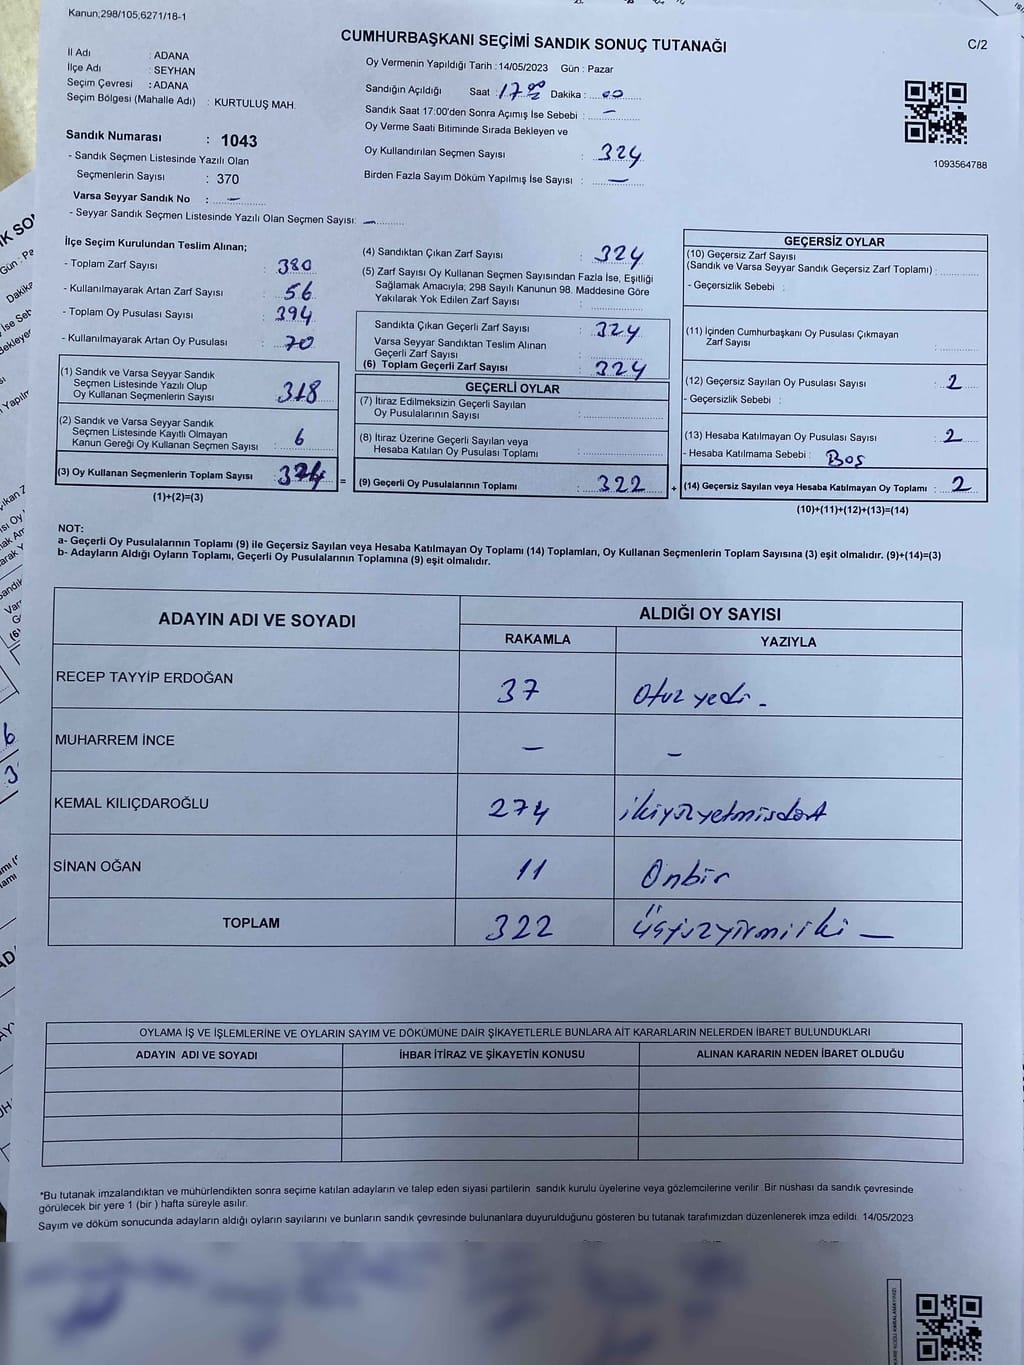 Kanun;298/105,6271/18-1
CUMHURBAŞKANI SEÇİMİ SANDIK SONUÇ TUTANAĞI
C/2
İl Adı : ADANA
İlçe Adı : SEYHAN
Seçim Çevresi : ADANA
Seçim Bölgesi (Mahalle Adı) : KURTULUŞ MAH.
Oy Vermenin Yapıldığı Tarih : 14/05/2023 Gün : Pazar
Sandığın Açıldığı Saat : 17 00 Dakika : 00
Sandık Saat 17:00'den Sonra Açımış İse Sebebi : —
Oy Verme Saati Bitiminde Sırada Bekleyen ve
Oy Kullandırılan Seçmen Sayısı : 324
Birden Fazla Sayım Döküm Yapılmış İse Sayısı : —
1093564788
Sandık Numarası : 1043
- Sandık Seçmen Listesinde Yazılı Olan
Seçmenlerin Sayısı : 370
Varsa Seyyar Sandık No : —
- Seyyar Sandık Seçmen Listesinde Yazılı Olan Seçmen Sayısı: —
İlçe Seçim Kurulundan Teslim Alınan;
- Toplam Zarf Sayısı : 380
- Kullanılmayarak Artan Zarf Sayısı : 56
- Toplam Oy Pusulası Sayısı : 394
- Kullanılmayarak Artan Oy Pusulası : 70
(1) Sandık ve Varsa Seyyar Sandık
Seçmen Listesinde Yazılı Olup
Oy Kullanan Seçmenlerin Sayısı : 318
(2) Sandık ve Varsa Seyyar Sandık
Seçmen Listesinde Kayıtlı Olmayan
Kanun Gereği Oy Kullanan Seçmen Sayısı : 6
(3) Oy Kullanan Seçmenlerin Toplam Sayısı : 324 =
(1)+(2)=(3)
(4) Sandıktan Çıkan Zarf Sayısı : 324
(5) Zarf Sayısı Oy Kullanan Seçmen Sayısından Fazla İse, Eşitliği
Sağlamak Amacıyla; 298 Sayılı Kanunun 98. Maddesine Göre
Yakılarak Yok Edilen Zarf Sayısı :
Sandıkta Çıkan Geçerli Zarf Sayısı : 324
Varsa Seyyar Sandıktan Teslim Alınan
Geçerli Zarf Sayısı :
(6) Toplam Geçerli Zarf Sayısı : 324
GEÇERLİ OYLAR
(7) İtiraz Edilmeksizin Geçerli Sayılan
Oy Pusulalarının Sayısı :
(8) İtiraz Üzerine Geçerli Sayılan veya
Hesaba Katılan Oy Pusulası Toplamı :
(9) Geçerli Oy Pusulalarının Toplamı : 322 +
GEÇERSİZ OYLAR
(10) Geçersiz Zarf Sayısı
(Sandık ve Varsa Seyyar Sandık Geçersiz Zarf Toplamı) :
- Geçersizlik Sebebi :
(11) İçinden Cumhurbaşkanı Oy Pusulası Çıkmayan
Zarf Sayısı :
(12) Geçersiz Sayılan Oy Pusulası Sayısı : 2
- Geçersizlik Sebebi :
(13) Hesaba Katılmayan Oy Pusulası Sayısı : 2
- Hesaba Katılmama Sebebi : Boş
(14) Geçersiz Sayılan veya Hesaba Katılmayan Oy Toplamı : 2
(10)+(11)+(12)+(13)=(14)
NOT:
a- Geçerli Oy Pusulalarının Toplamı (9) ile Geçersiz Sayılan veya Hesaba Katılmayan Oy Toplamı (14) Toplamları, Oy Kullanan Seçmenlerin Toplam Sayısına (3) eşit olmalıdır. (9)+(14)=(3)
b- Adayların Aldığı Oyların Toplamı, Geçerli Oy Pusulalarının Toplamına (9) eşit olmalıdır.
ADAYIN ADI VE SOYADI ALDIĞI OY SAYISI
RAKAMLA YAZIYLA
RECEP TAYYİP ERDOĞAN 37 Otuz yedi -
MUHARREM İNCE — —
KEMAL KILIÇDAROĞLU 274 ikiyüzyetmişdört
SİNAN OĞAN 11 Onbir
TOPLAM 322 Üçyüzyirmiiki —
OYLAMA İŞ VE İŞLEMLERİNE VE OYLARIN SAYIM VE DÖKÜMÜNE DAİR ŞİKAYETLERLE BUNLARA AİT KARARLARIN NELERDEN İBARET BULUNDUKLARI
ADAYIN ADI VE SOYADI İHBAR İTİRAZ VE ŞİKAYETİN KONUSU ALINAN KARARIN NEDEN İBARET OLDUĞU
*Bu tutanak imzalandıktan ve mühürlendikten sonra seçime katılan adayların ve talep eden siyasi partilerin sandık kurulu üyelerine veya gözlemcilerine verilir. Bir nüshası da sandık çevresinde
görülecek bir yere 1 (bir ) hafta süreyle asılır.
Sayım ve döküm sonucunda adayların aldığı oyların sayılarını ve bunların sandık çevresinde bulunanlara duyurulduğunu gösteren bu tutanak tarafımızdan düzenlenerek imza edildi. 14/05/2023